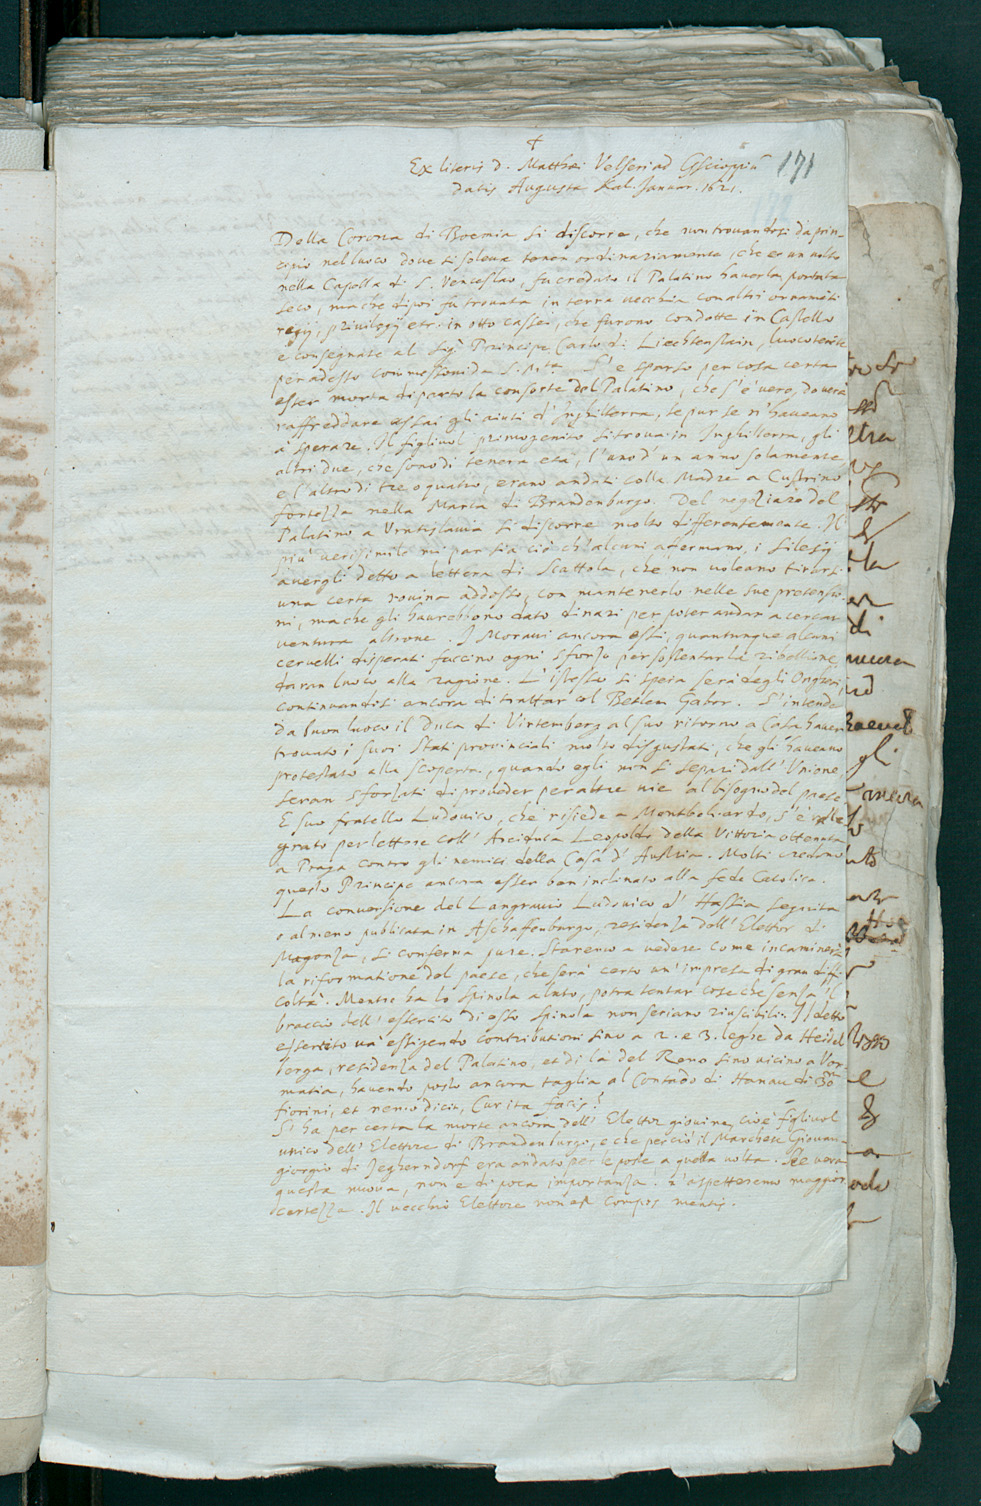 †
Ex literis D. Matthæi Velseri ad G. Scioppiũ
datis Augusta Kal. Januar. 1621.
171
Della Corona di Boemia si discorre, che non trovandosi da prin-
cipio nel luoco dove si soleva tener ordinariamente, che er un volto
nella Capella di S. Venceslao, fu creduto il Palatino haverla portata
seco, ma che dipoi fu trovata in terra vecchia con altri ornamẽti
regij, privilegij etc. in otto cassei, che furono condotte in Castello
e consegnate al Sigr Principe Carlo di Liechtenstain, luocotenẽte
per adesso commessionida S. M.ta S'è sparso per cosa certa
esser morta di parto la consorte del Palatino, che s'è vero, doverà
raffreddare assai gli aiuti d'Inghilterra, se pur se n'haveano
à sperare. Il figliuol primogenito si trova in Inghilterra, gli
altri due, che sono di tenera età, l'uno d'un anno solamente
e l'altro di tre o quatro, erano andati colla Madre a Custrino
fortezza nella Marca di Brandenburgo. Del negoziare del
Palatino a Vratislavia si discorre molto differentemente. Il
più verisimile mi par sia ciò ch'alcuni affermano, i Silesij
avergli detto a lettera di scattola, che non voleano tirarsi
una certa rovina addosso, con mantenerlo nelle sue pretensio-
ni, ma che gli haurebbono dato dinari per poter andar a cercar
ventura altrove. I Moravi ancora essi, quantunque alcuni
cervelli disperati faccino ogni sforzo per sostentar la ribellione,
daran luoco alla ragione. L'istesso si spera serà degli Ongari,
continuandosi ancora di trattar col Betlen Gabor. S'intende
da buon luoco il Duca di Virtemberg al suo ritorno a Casa haver
trovato i suoi Stati provinciali molto disgustati, che gli haveano
protestato alla scoperta, quando egli non si separi dall'Unione,
seran sforzati di proceder per altre vie al bisogno del paese
E suo fratello Ludovico, che risiede a Montbeliardo, s'è ralle
grato per lettere coll'Arciduca Leopoldo della Vittoria ottenuta
a Praga contro gli nemici della Casa d'Austria. Molti credono
questo Principe ancora esser ben inclinato alla fede Catolica.
La conversione del Langravio Ludovico d'Hassia seguita
o almeno publicata in Aschaffenburgo, residenza dell'Elettor di
Magonza, si conferma pure. Staremo a vedere come incaminerà
la riformatione del paese, che serà certo un'impresa di gran diffi
coltà. Mentre ha lo Spinola a lato, potrà tentar cose che senza il
braccio dell'essercito di esso Spinola non seriano riuscibili. Il detto
essercito và essigendo contributioni sino a 2. e 3. leghe da Heidel
berga, residenza del Palatino, et di là del Reno sino vicino a Vor
matia, havendo posto ancora taglia al Contado di Hanau di 30m
fiorini, et nemo dicit, Cur ita facis?
S'ha per certa la morte ancora dell'Elettor giovine, cioè figliuol
unico dell'Elettore di Brandenburgo, e che perciò il Marchese Giovan-
giorgio di Jegherndorf era andato per le poste a quella volta. Se è vera
questa nuova, non è di poca importanza. N'aspetteremo maggior
certezza. Il vecchio Elettore non est compos mentis.